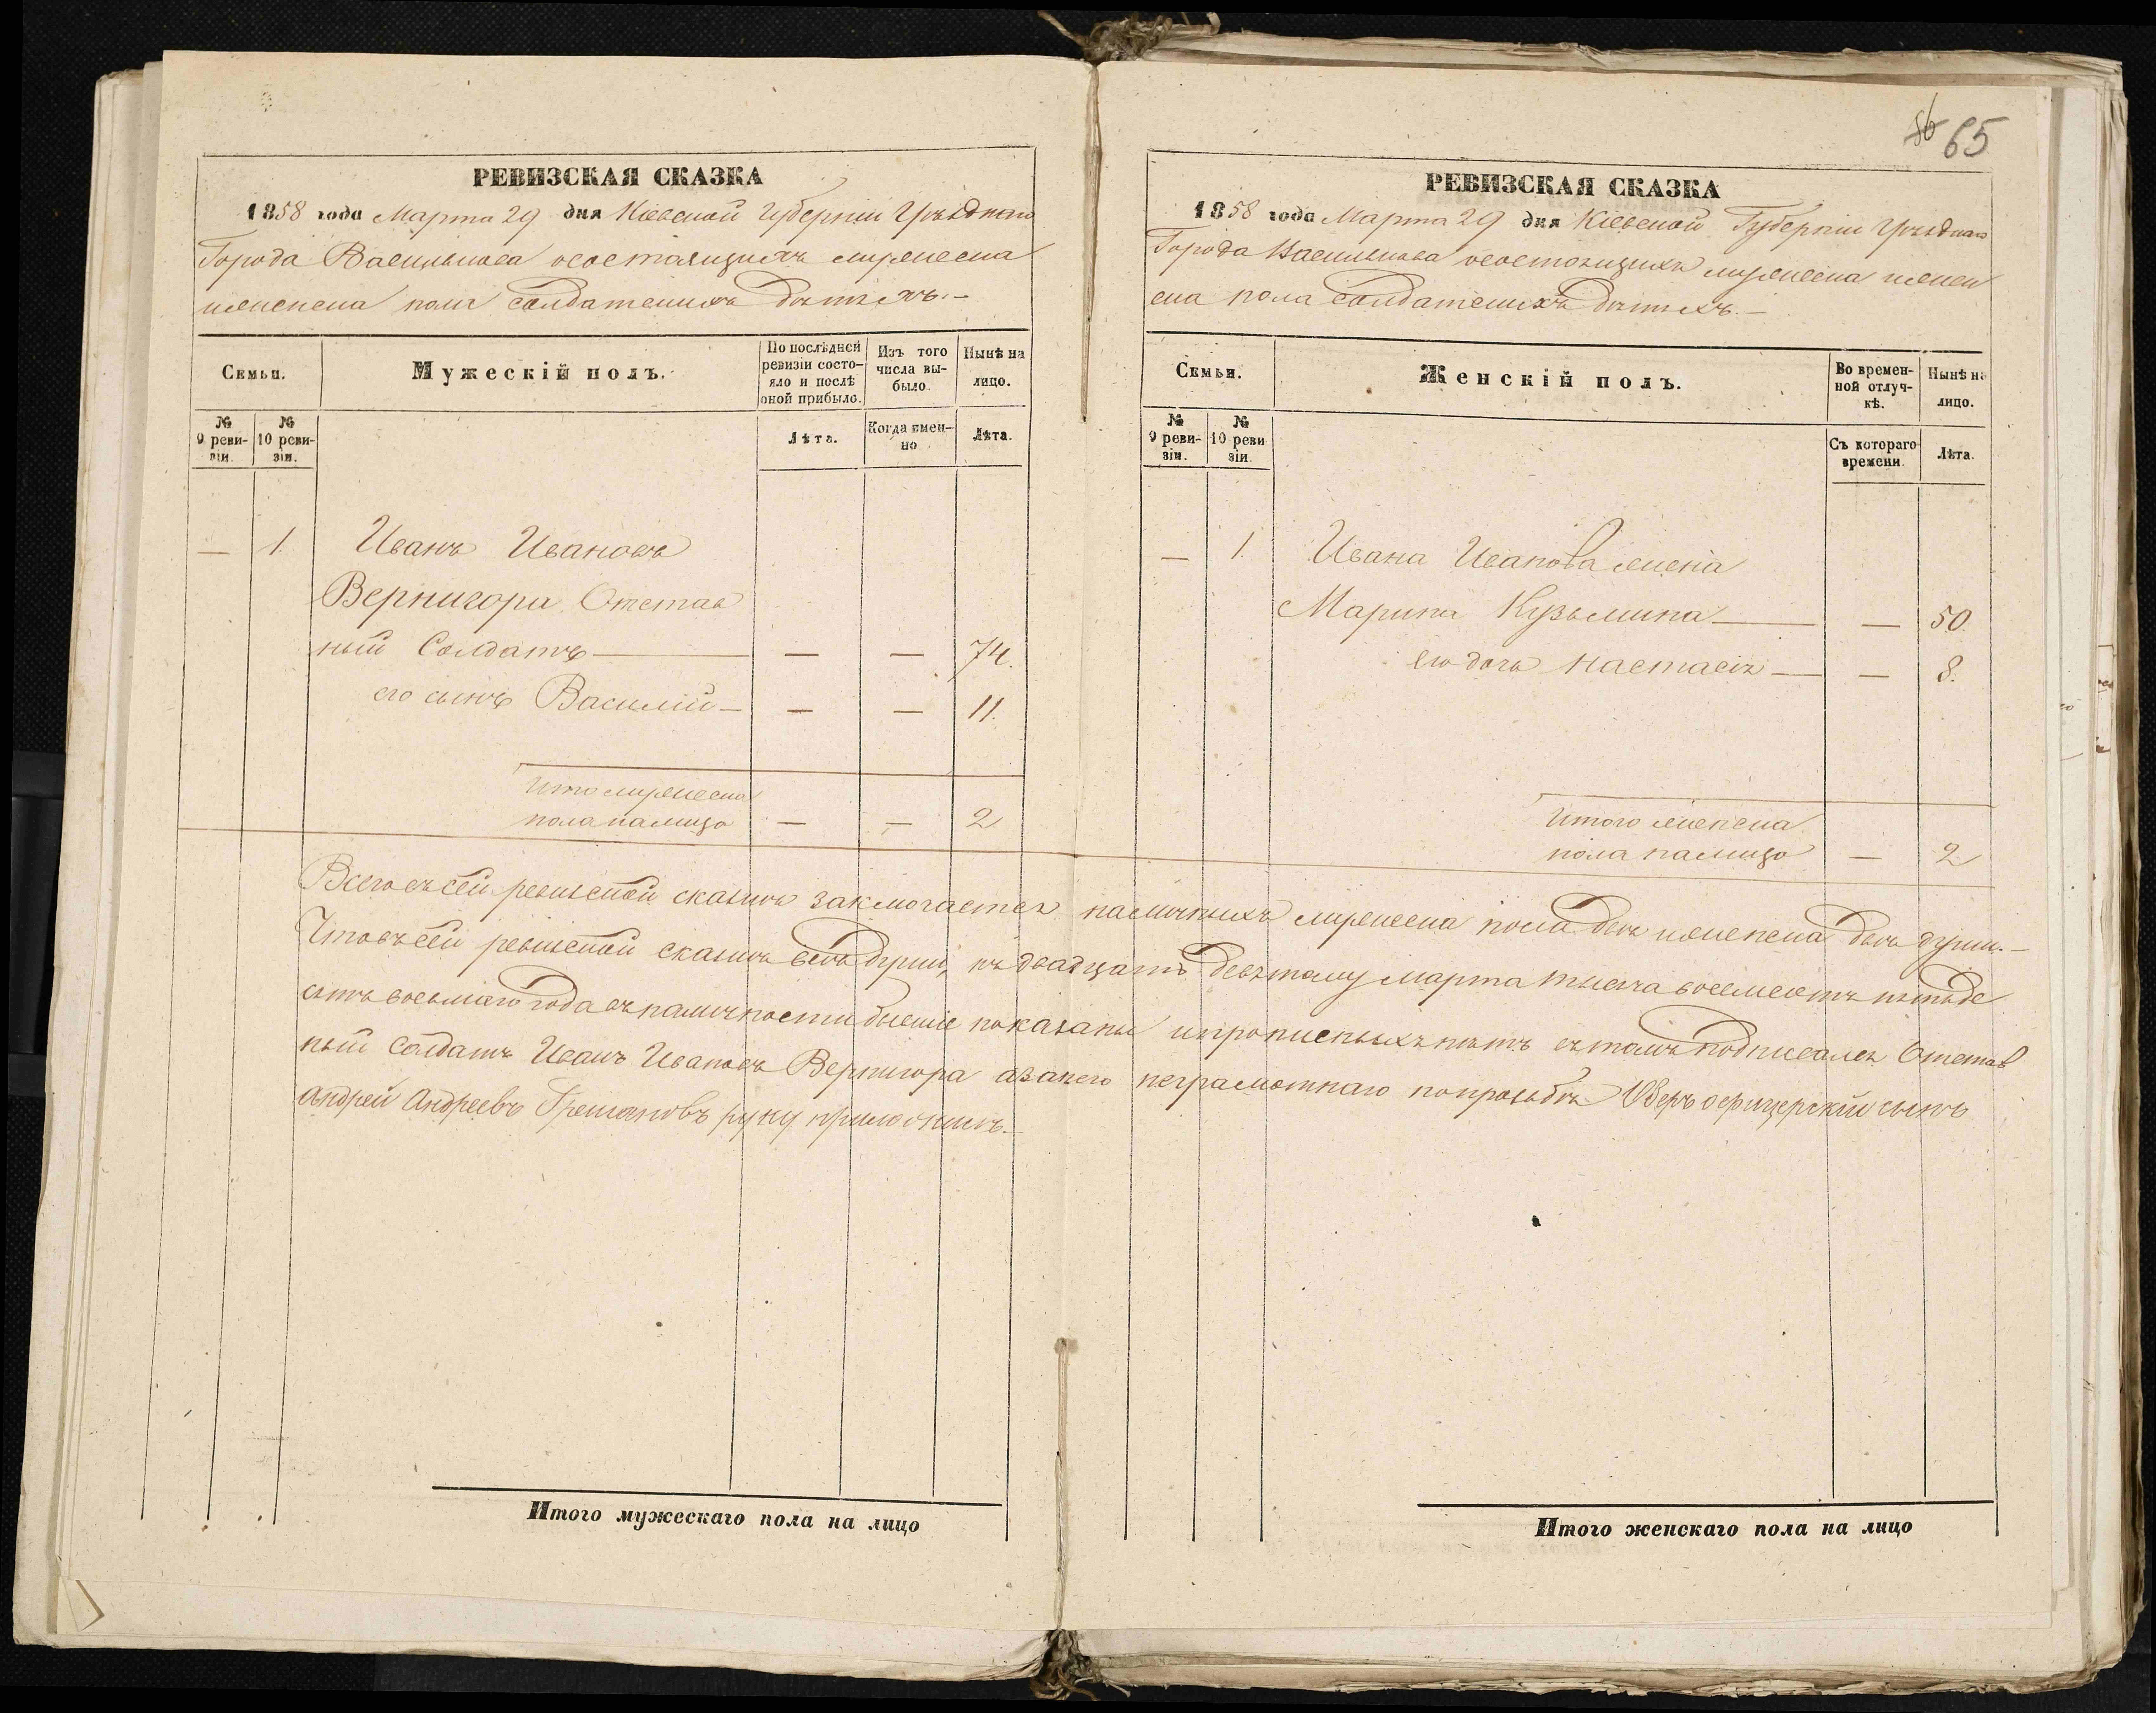 86 65
РЕВИЗСКАЯ СКАЗКА
1858 года Марта 29 дня Кіевской Губерніи Уѣзднаго
Города Василькова осостоящихъ мужеска
иженска пола солдатскихъ дѣтяхъ.—
Семьи.
Мужескій полъ.
По послѣдней ревизіи состояло и послѣ оной прибыло.
Изъ того числа выбыло.
Нынѣ на лицо.
№ 9 ревизіи.
№ 10 ревизіи.
Лѣта.
Когда именно
Лѣта.
— 1. Иванъ Ивановъ
Вернигора Отстав
ный Солдатъ — — — 74.
его сынъ Василій — — — 11.
Итого мужеска
пола налицо — — 2
РЕВИЗСКАЯ СКАЗКА
1858 года Марта 29 дня Кіевской Губерніи Уѣзднаго
Города Василькова осостоящихъ мужеска ижен
ска пола солдатскихъ дѣтяхъ.—
Семьи.
Женскій полъ.
Во временной отлучкѣ.
Нынѣ на лицо.
№ 9 ревизіи.
№ 10 ревизіи.
Съ котораго времени.
Лѣта.
— 1. Ивана Иванова жена
Марина Кузьмина — — 50.
его дочь Настасія — — 8.
Итого женска
пола налицо — 2
Всего въ сей ревизской сказкѣ заключается наличныхъ мужеска пола двѣ иженска двѣ души.—
Что въ сей ревизской сказкѣ всѣ души, къ двадцать девятому Марта тысяча восемсотъ пятьде
сятъ восьмаго года въ наличности бывшіе показаны ипрописныхъ нѣтъ въ томъ подписался Отстав
ный Солдатъ Иванъ Ивановъ Вернигора азанего неграмотнаго попрозьбѣ Оберъ офицерскій сынъ
Андрей Андреевъ руку приложилъ.
Итого мужескаго пола на лицо
Итого женскаго пола на лицо